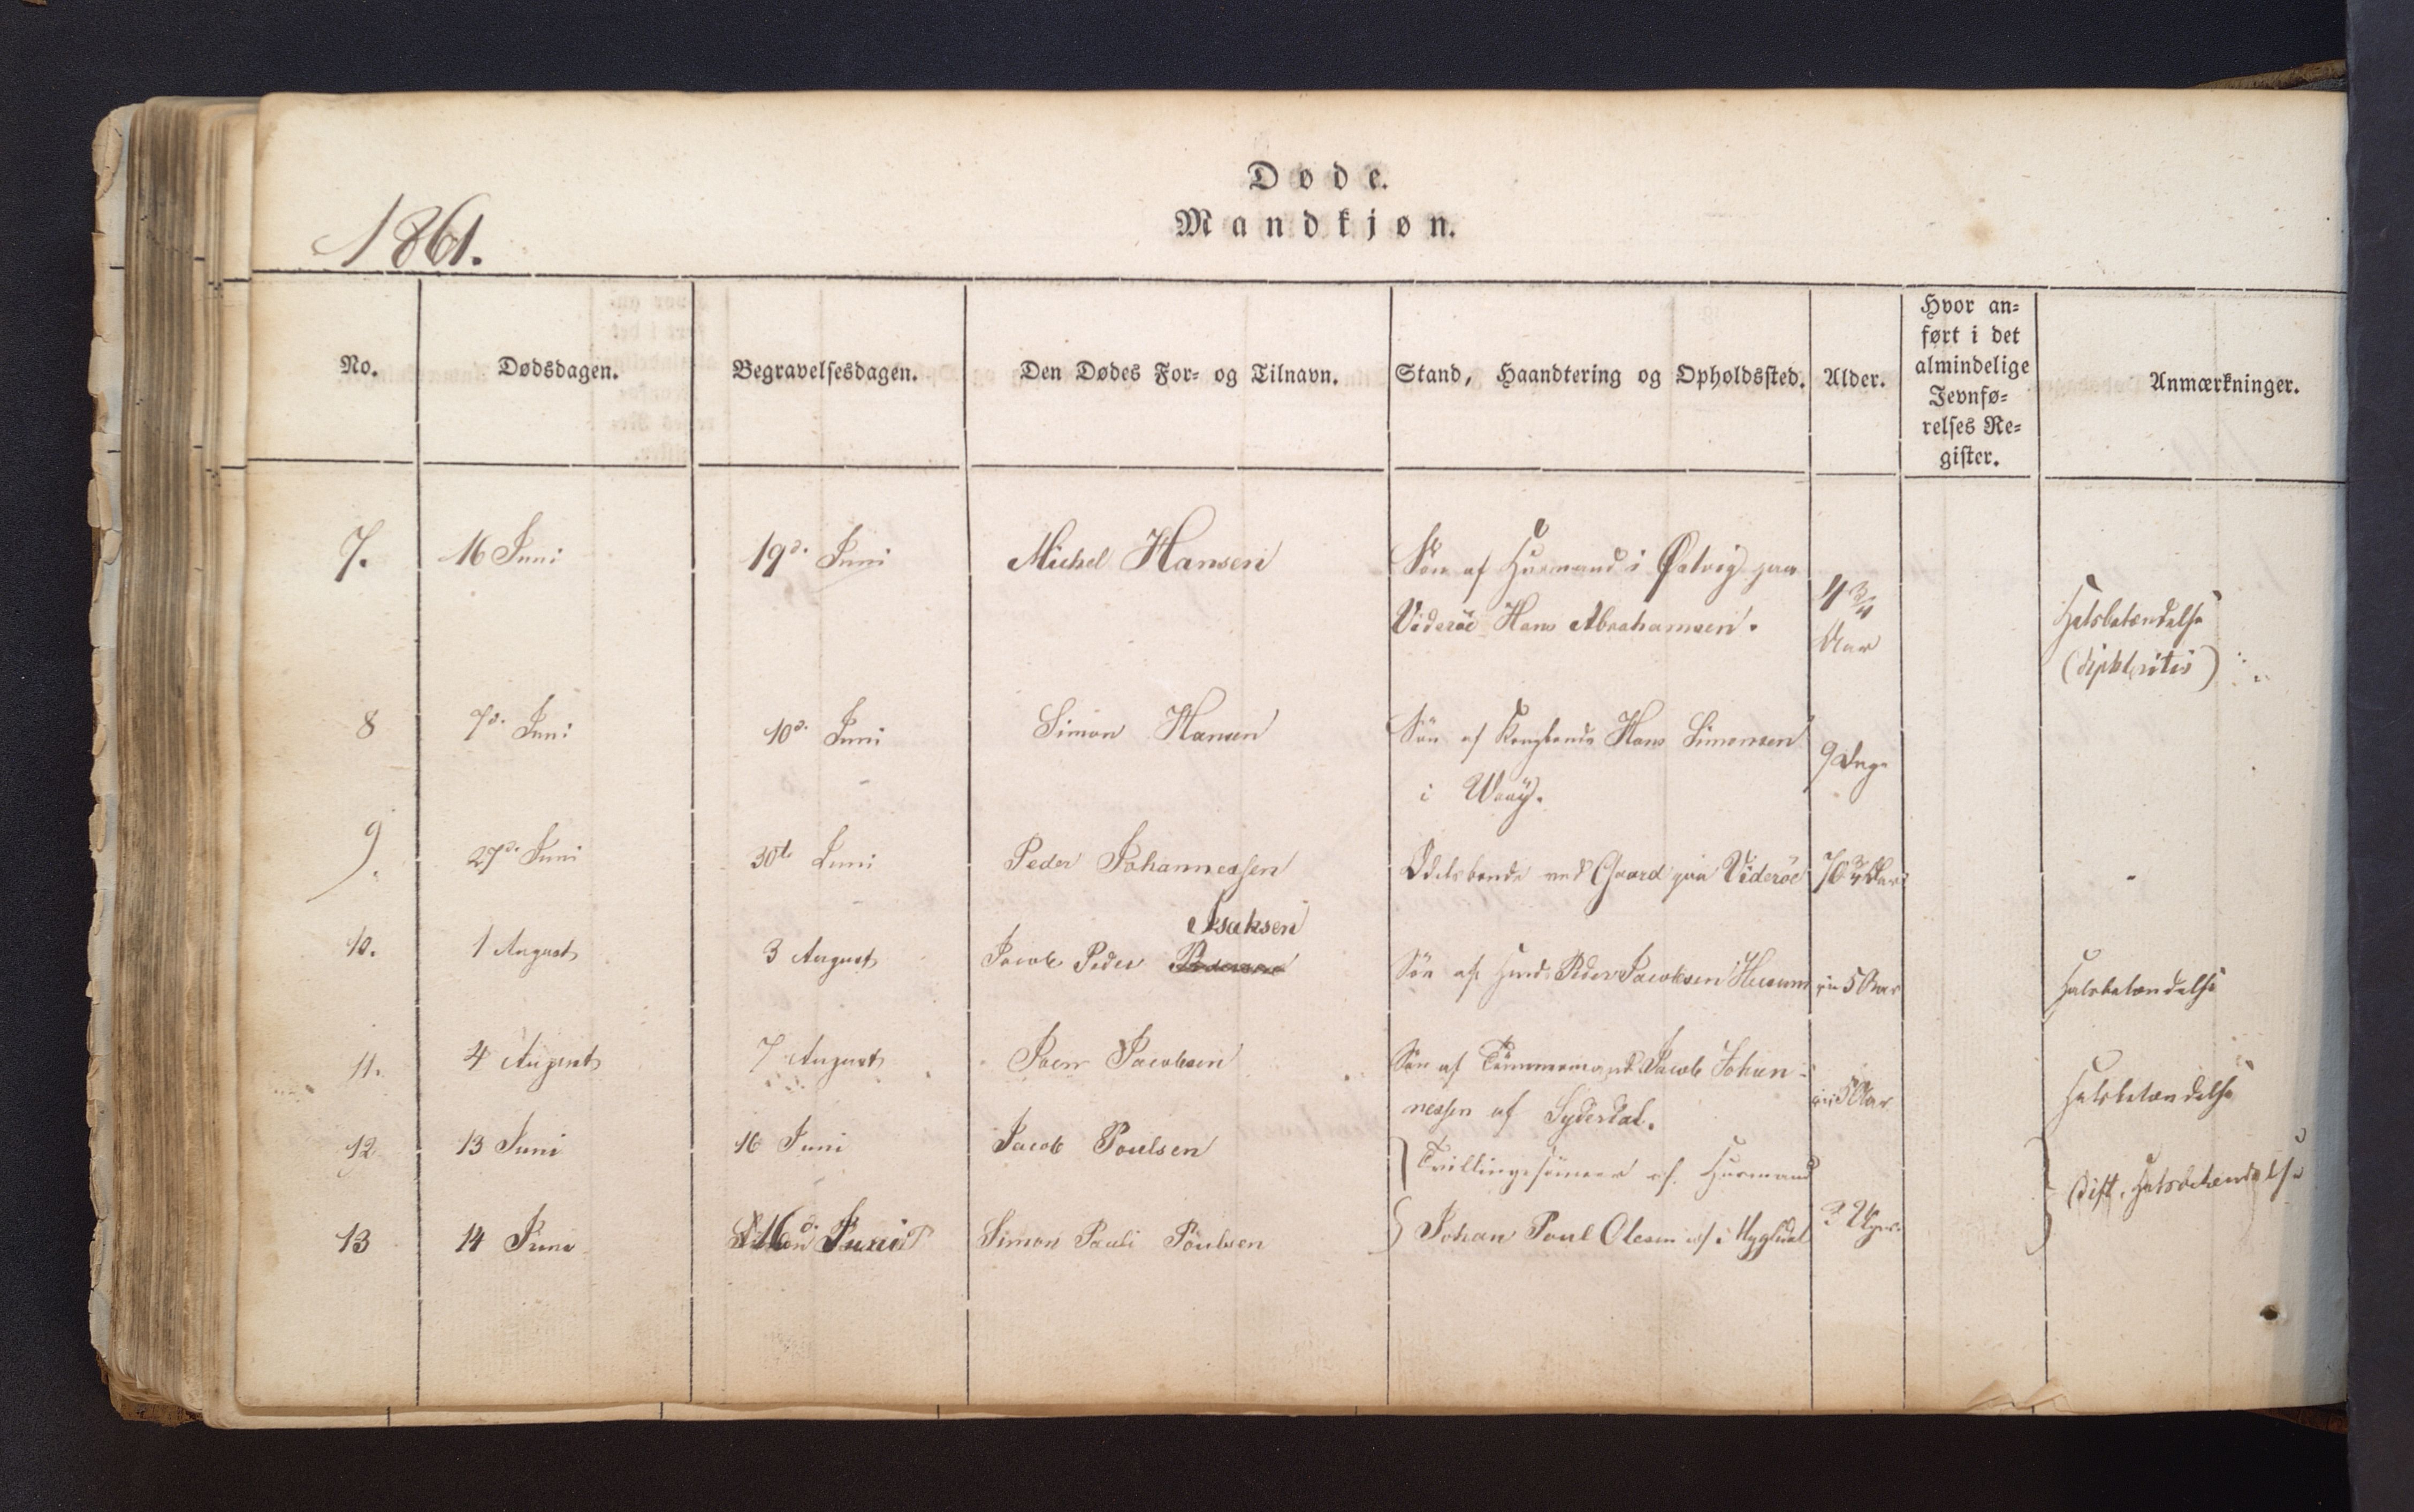 Døde.
Mandkjøn.
1861.
No. Dødsdagen. Begravelsesdagen. Den Dødes For- og Tilnavn. Stand, Haandtering og Opholdssted. Alder. Hvor an-
ført i det
almindelige
Jevnfø-
relses Re-
gister.
Anmærkninger.
7. 16 Juni 19d. Juni Michel Hansen Sön af Huusmand i Qvalvig paa
Videröe Hans Abrahamsen. 4 3/4
Aar
Halsbetændelse
(diphteritis)
8 7d. Juni 10d. Juni Simon Hansen Sön af Kongsbonde Hans Simonsen
i Waaÿ. 9 Dage
9. 27d. Juni 30te Juni Peder Johannessen Odelsbonde ved Gaard paa Videröe 70 3/4 Aar
Isaksen
10. 1 August 3 August Jacob Peder Sön af Peder Jacobsen Husum 5 Aar Halsbetændelse
11. 4 August 7 August Joen Jacobsen Sön af Tömmermand Jacob Johan-
nessen af Syderdal. 5 Aar Halsbetændelse
12 13 Juni 16 Juni Jacob Poulsen Tvillingesönner af Huusmand
13 14 Juni 16d. Juni Simon Pauli Poulsen Johan Poul Olesen i Mygledal 3 Uger Dift. Halsbetændelse